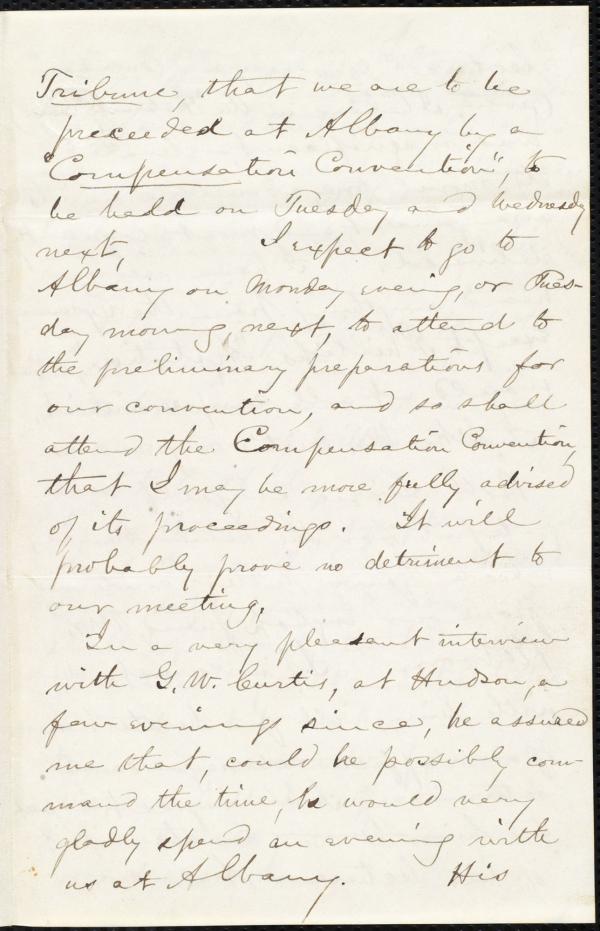 Tribune, that we are to be
preceeded at Albany by a
"Compensation Convention", to
be held on Tuesday and Wednesday
next, I expect to go to
Albany on Monday evening, or Tues-
day morning, next, to attend to
the preliminary preparations for
our convention, and so shall
attend the Compensation Convention,
that I may be more fully advised
of its proceedings. It will
probably prove no detriment to
our meeting,
In a very pleasant interview
with G. W. Curtis, at Hudson, a
few evenings since, he assured
me that, could he possibly com-
mand the time, he would very
gladly spend an evening with
us at Albany. His